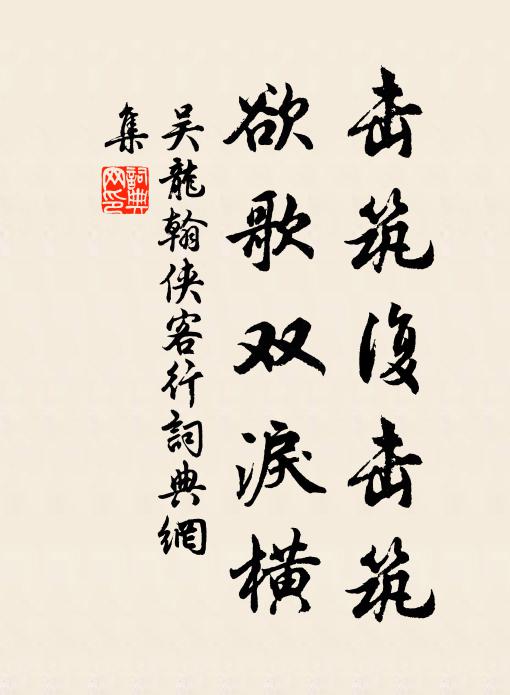 击筑復击筑
欲歌双淚横
吴龍翰侠客行詞典網
集
詞典
网印